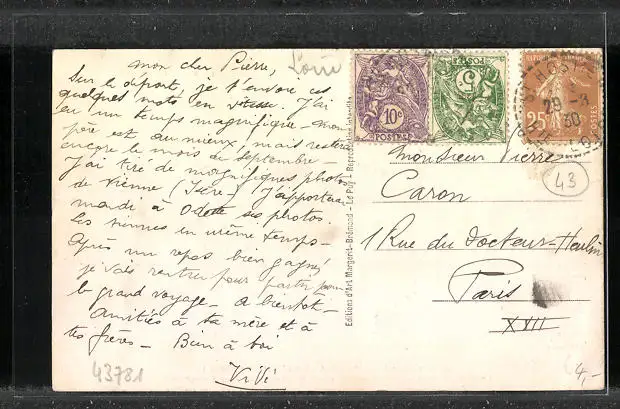 mon cher Pierre,
Sur le départ, je t'envoie ces
quelques mots en vitesse. J'ai
eu un temps magnifique - mon
père est au mieux, mais restera
encore le mois de septembre -
J'ai tiré de magnifiques photos
de Vienne (Isère). J'apporterai
mardi à Odette ses photos.
les tiennes en même temps -
Après un repos bien gagné,
je vais rentrer pour partir pour
le grand voyage - A bientôt -
Amitiés à ta mère et à
tes frères - Bien à toi
ViVi
43781
Loire
10c
POSTES
5
POSTES
25c
POSTES
29-8
30
43
Monsieur Pierre
Caron
1 Rue du Docteur-Heulin
Paris
XVII
4,-
Editions d'Art Margerit-Brémond - Le Puy - Reproduction interdite